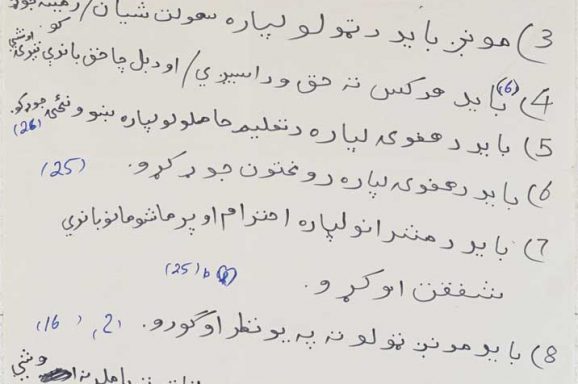 3) مونږ باید د ټولو لپاره سهولت شیان /
کو.
4) باید هرکس ته حق ورسیږي / او د بل چا حق باندې
(6)
5) باید د هغوی لپاره د تعلیم حاصلولو لپاره ښوونځي جوړ کو.
(26)
6) باید د هغوی لپاره روغتون جوړ کړو. (25)
7) باید د مشرانو لپاره احترام او پر ماشومانو باندې
شفقت اوکړو. (25) b
8) باید مونږ ټولو ته په یو نظر اوګورو. (2, (16)